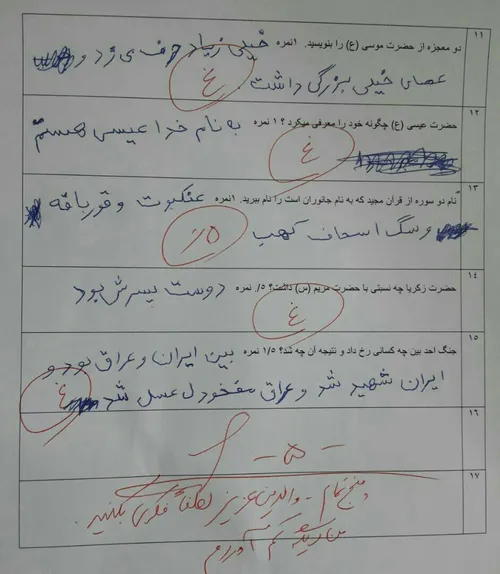 ۱۱
دو معجزه از حضرت موسی (ع) را بنویسید. ۱نمره خیلی زیاد حرف می زد و
عصای خیلی بزرگی داشت
غ
۱۲
حضرت عیسی (ع) چگونه خود را معرفی میکرد؟ ۱ نمره به نام خدا عیسی هستم
غ
۱۳
نام دو سوره از قرآن مجید که به نام جانوران است را نام ببرید. ۱نمره عنکبوت و قورباقه
و سگ اسحاف کهب
۵/.
۱۴
حضرت زکریا چه نسبتی با حضرت مریم (س) داشت؟ ۵/. نمره دوست پسرش بود
غ
۱۵
جنگ احد بین چه کسانی رخ داد و نتیجه آن چه شد؟ ۱/۵ نمره بین ایران و عراق بود و
ایران شهید شد و عراق مفخودل عسل شد
غ
۱۶
- ۵ -
۱۷
پنج تمام - والدین عزیز لطفاً فکری بکنید.
من دیگه کم آوردم